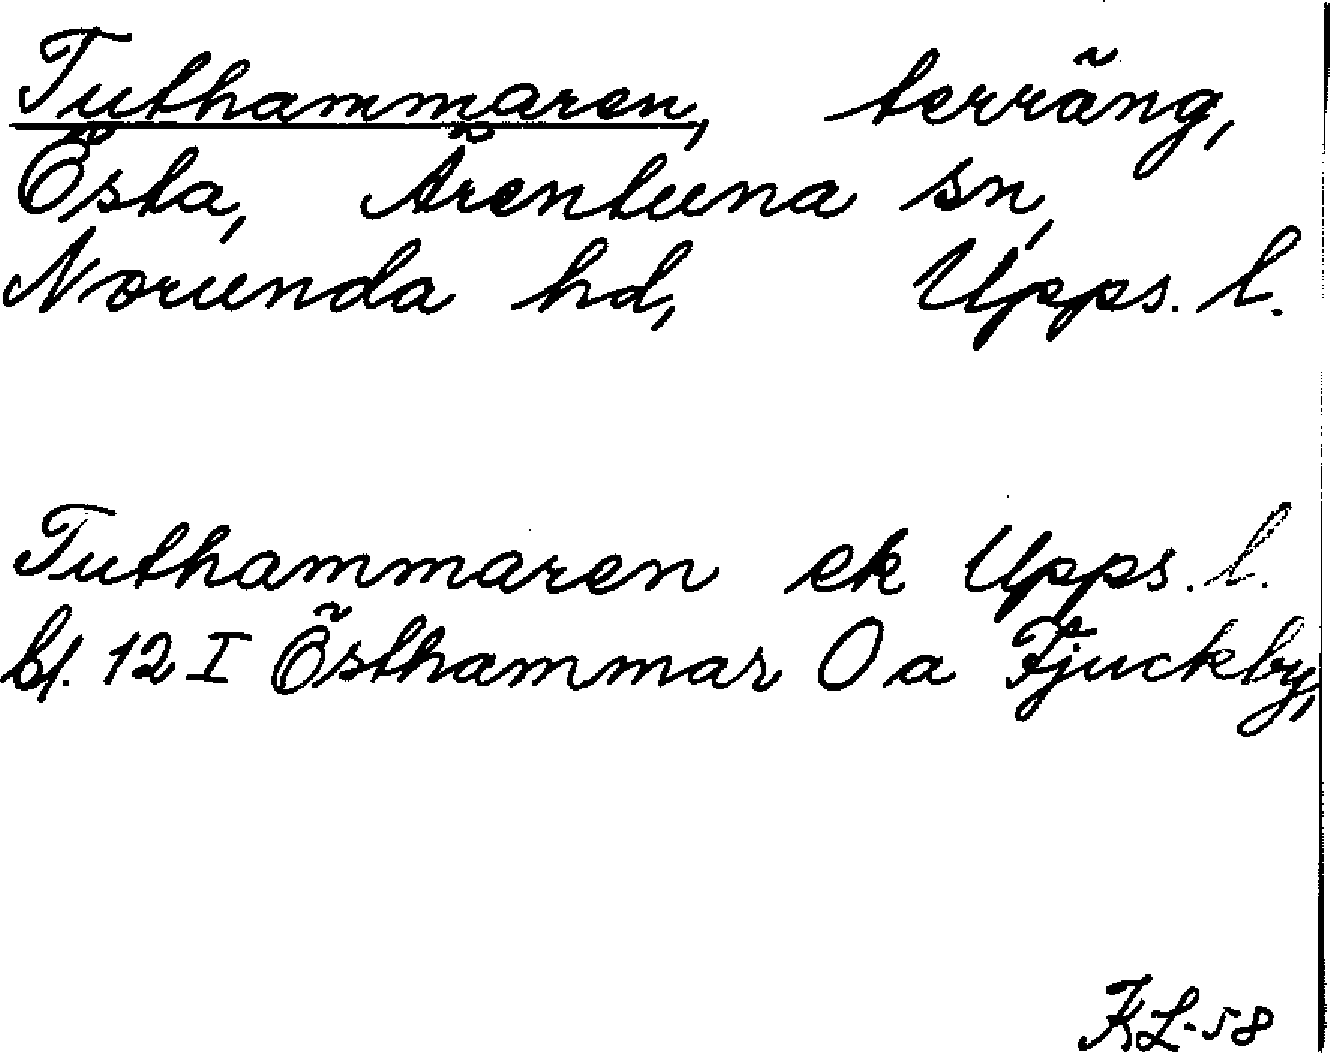 Tuthammaren, terräng,
Östa, Ärentuna sn,
Norunda hd, Upps. l.
Tuthammaren ek Upps. l.
bl. 12 I Östhammar O a Fjuckby,
KL-58